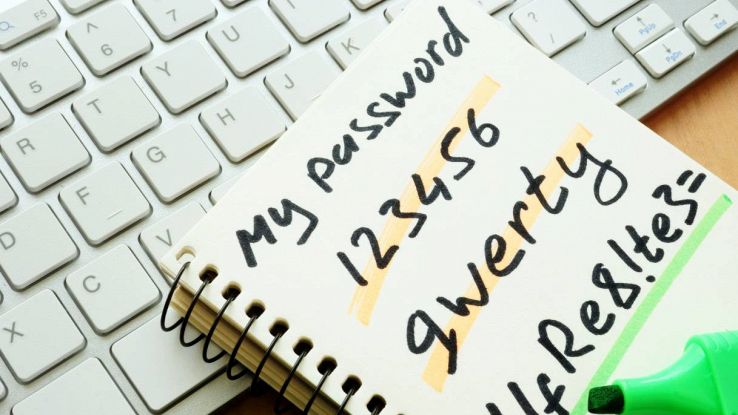 My password
123456
qwerty
fRe8!te3=
% 5
^ 6
R
T
Y
U
I
D
F
G
H
J
K
X
C
V
? /
Home
PgUp
PgDn
End